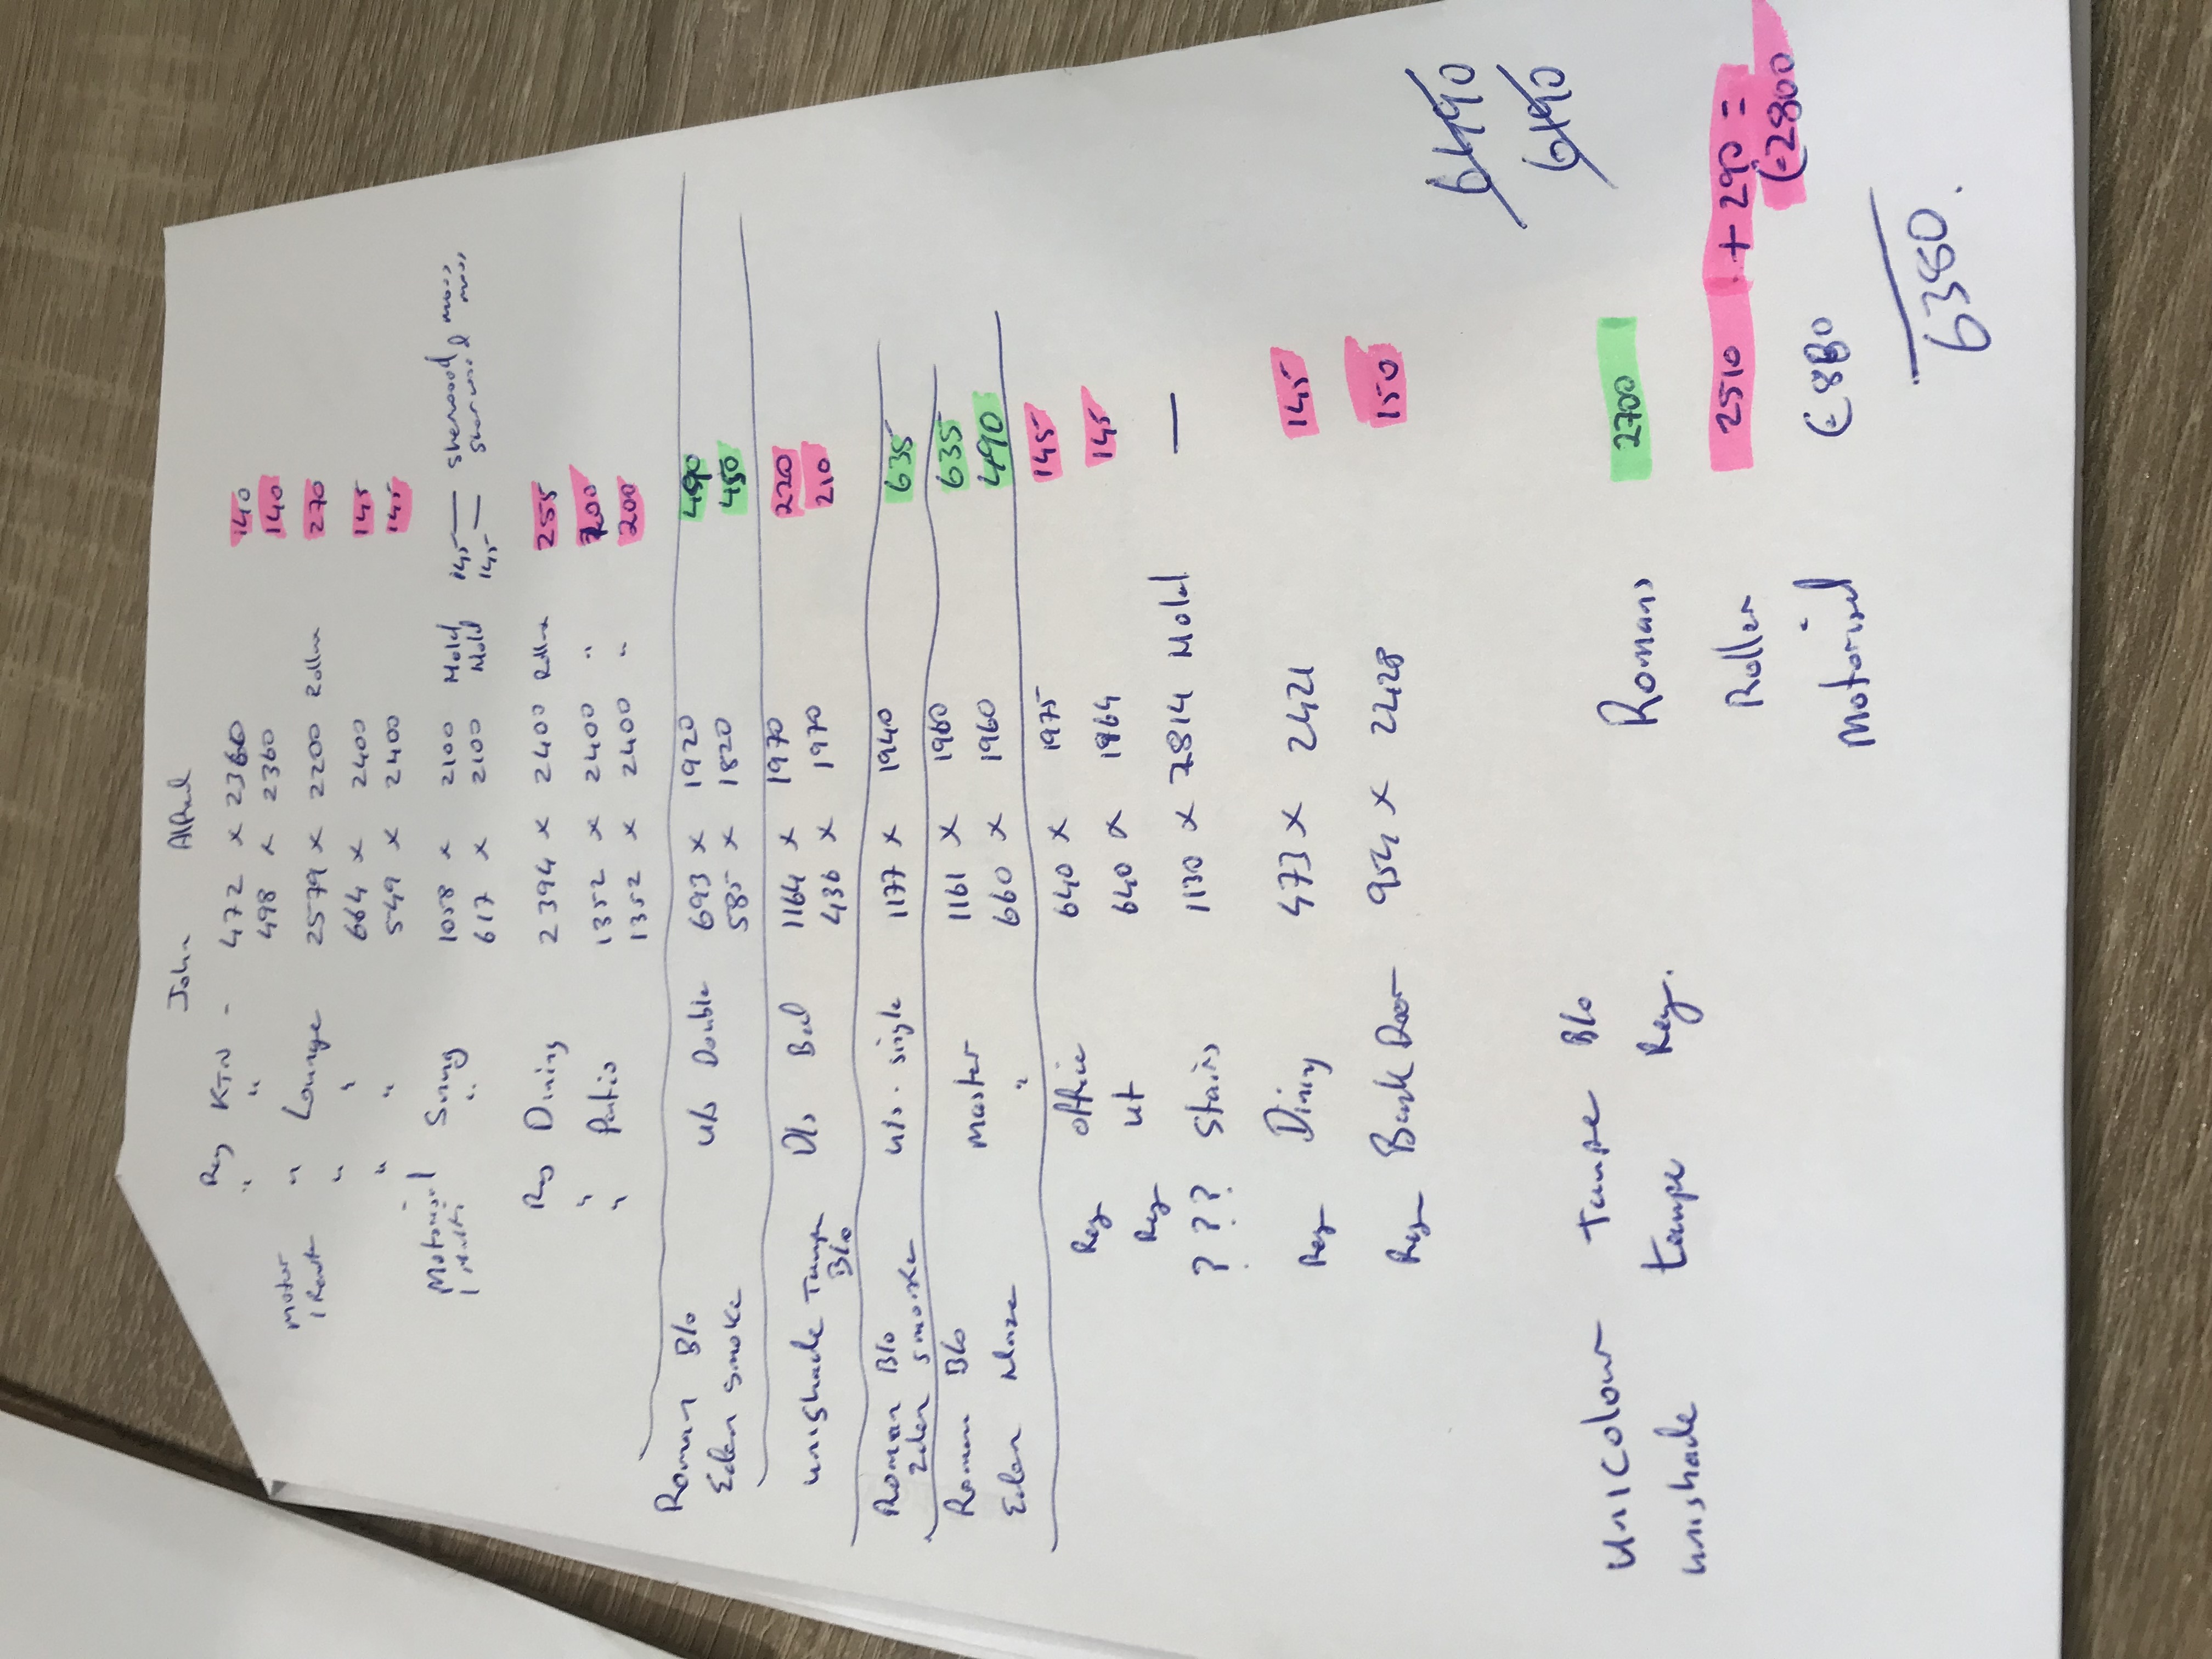 John
Reg KTN - 472 x 2360 140
" " 498 x 2360 140
Motor " Lounge 2579 x 2200 Roller 270
1 Remote " " 664 x 2400 145
" " 549 x 2400 145
Motorised Snug 1058 x 2100 Mold 145 — Sherwood moss
1 " 617 x 2100 Mold 145 — Sherwood moss
Reg Dining 2394 x 2400 Roller 255
" Patio 1352 x 2400 " 200
" 1352 x 2400 " 200
Roman Blo u/s Double 693 x 1920 490
Eden Smoke 585 x 1820 450
unishade Tempe D/s Bed 1164 x 1970 220
Blo 436 x 1970 210
Roman Blo u/s. single 1177 x 1940 635
Eden smoke
Roman Blo master 1161 x 1960 635
Eden " 660 x 1960 490
Reg office 640 x 1975 145
Reg ut 640 x 1864 145
? ? ? Stairs 1130 x 2814 Mold —
Reg Dining 473 x 2421 145
Reg Back Door 954 x 2428 150
6490
6190
unicolour Tempe Blo Romans 2700
unishade tempe Reg. Roller 2510 + 290 =
(2800
Motorised (880
6380.